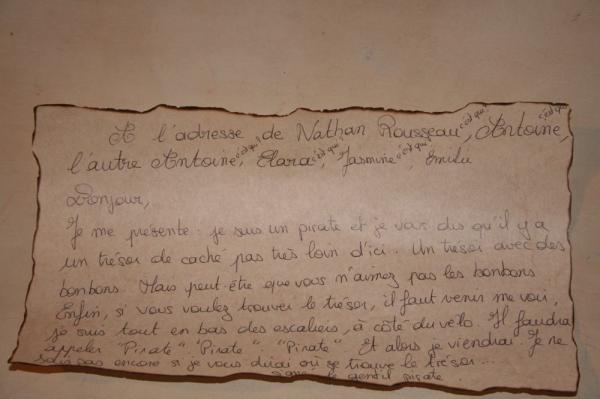 A l'adresse de Nathan Rousseau, c'est qui? Antoine, c'est qui?
l'autre Antoine, c'est qui? Clara, c'est qui? Jasmine c'est qui?, Emilie
Bonjour,
Je me présente : je suis un pirate et je vais dis qu'il y a
un trésor de caché pas très loin d'ici. Un trésor avec des
bonbons. Mais peut-être que vous n'aimez pas les bonbons
Enfin, si vous voulez trouver le trésor, il faut venir me voir,
je suis tout en bas des escaliers, à côté du vélo. Il faudra
appeler "Pirate" "Pirate" "Pirate". Et alors je viendrai. Je ne
sais pas encore si je vous dirai où se trouve le trésor...
signé : le gentil pirate